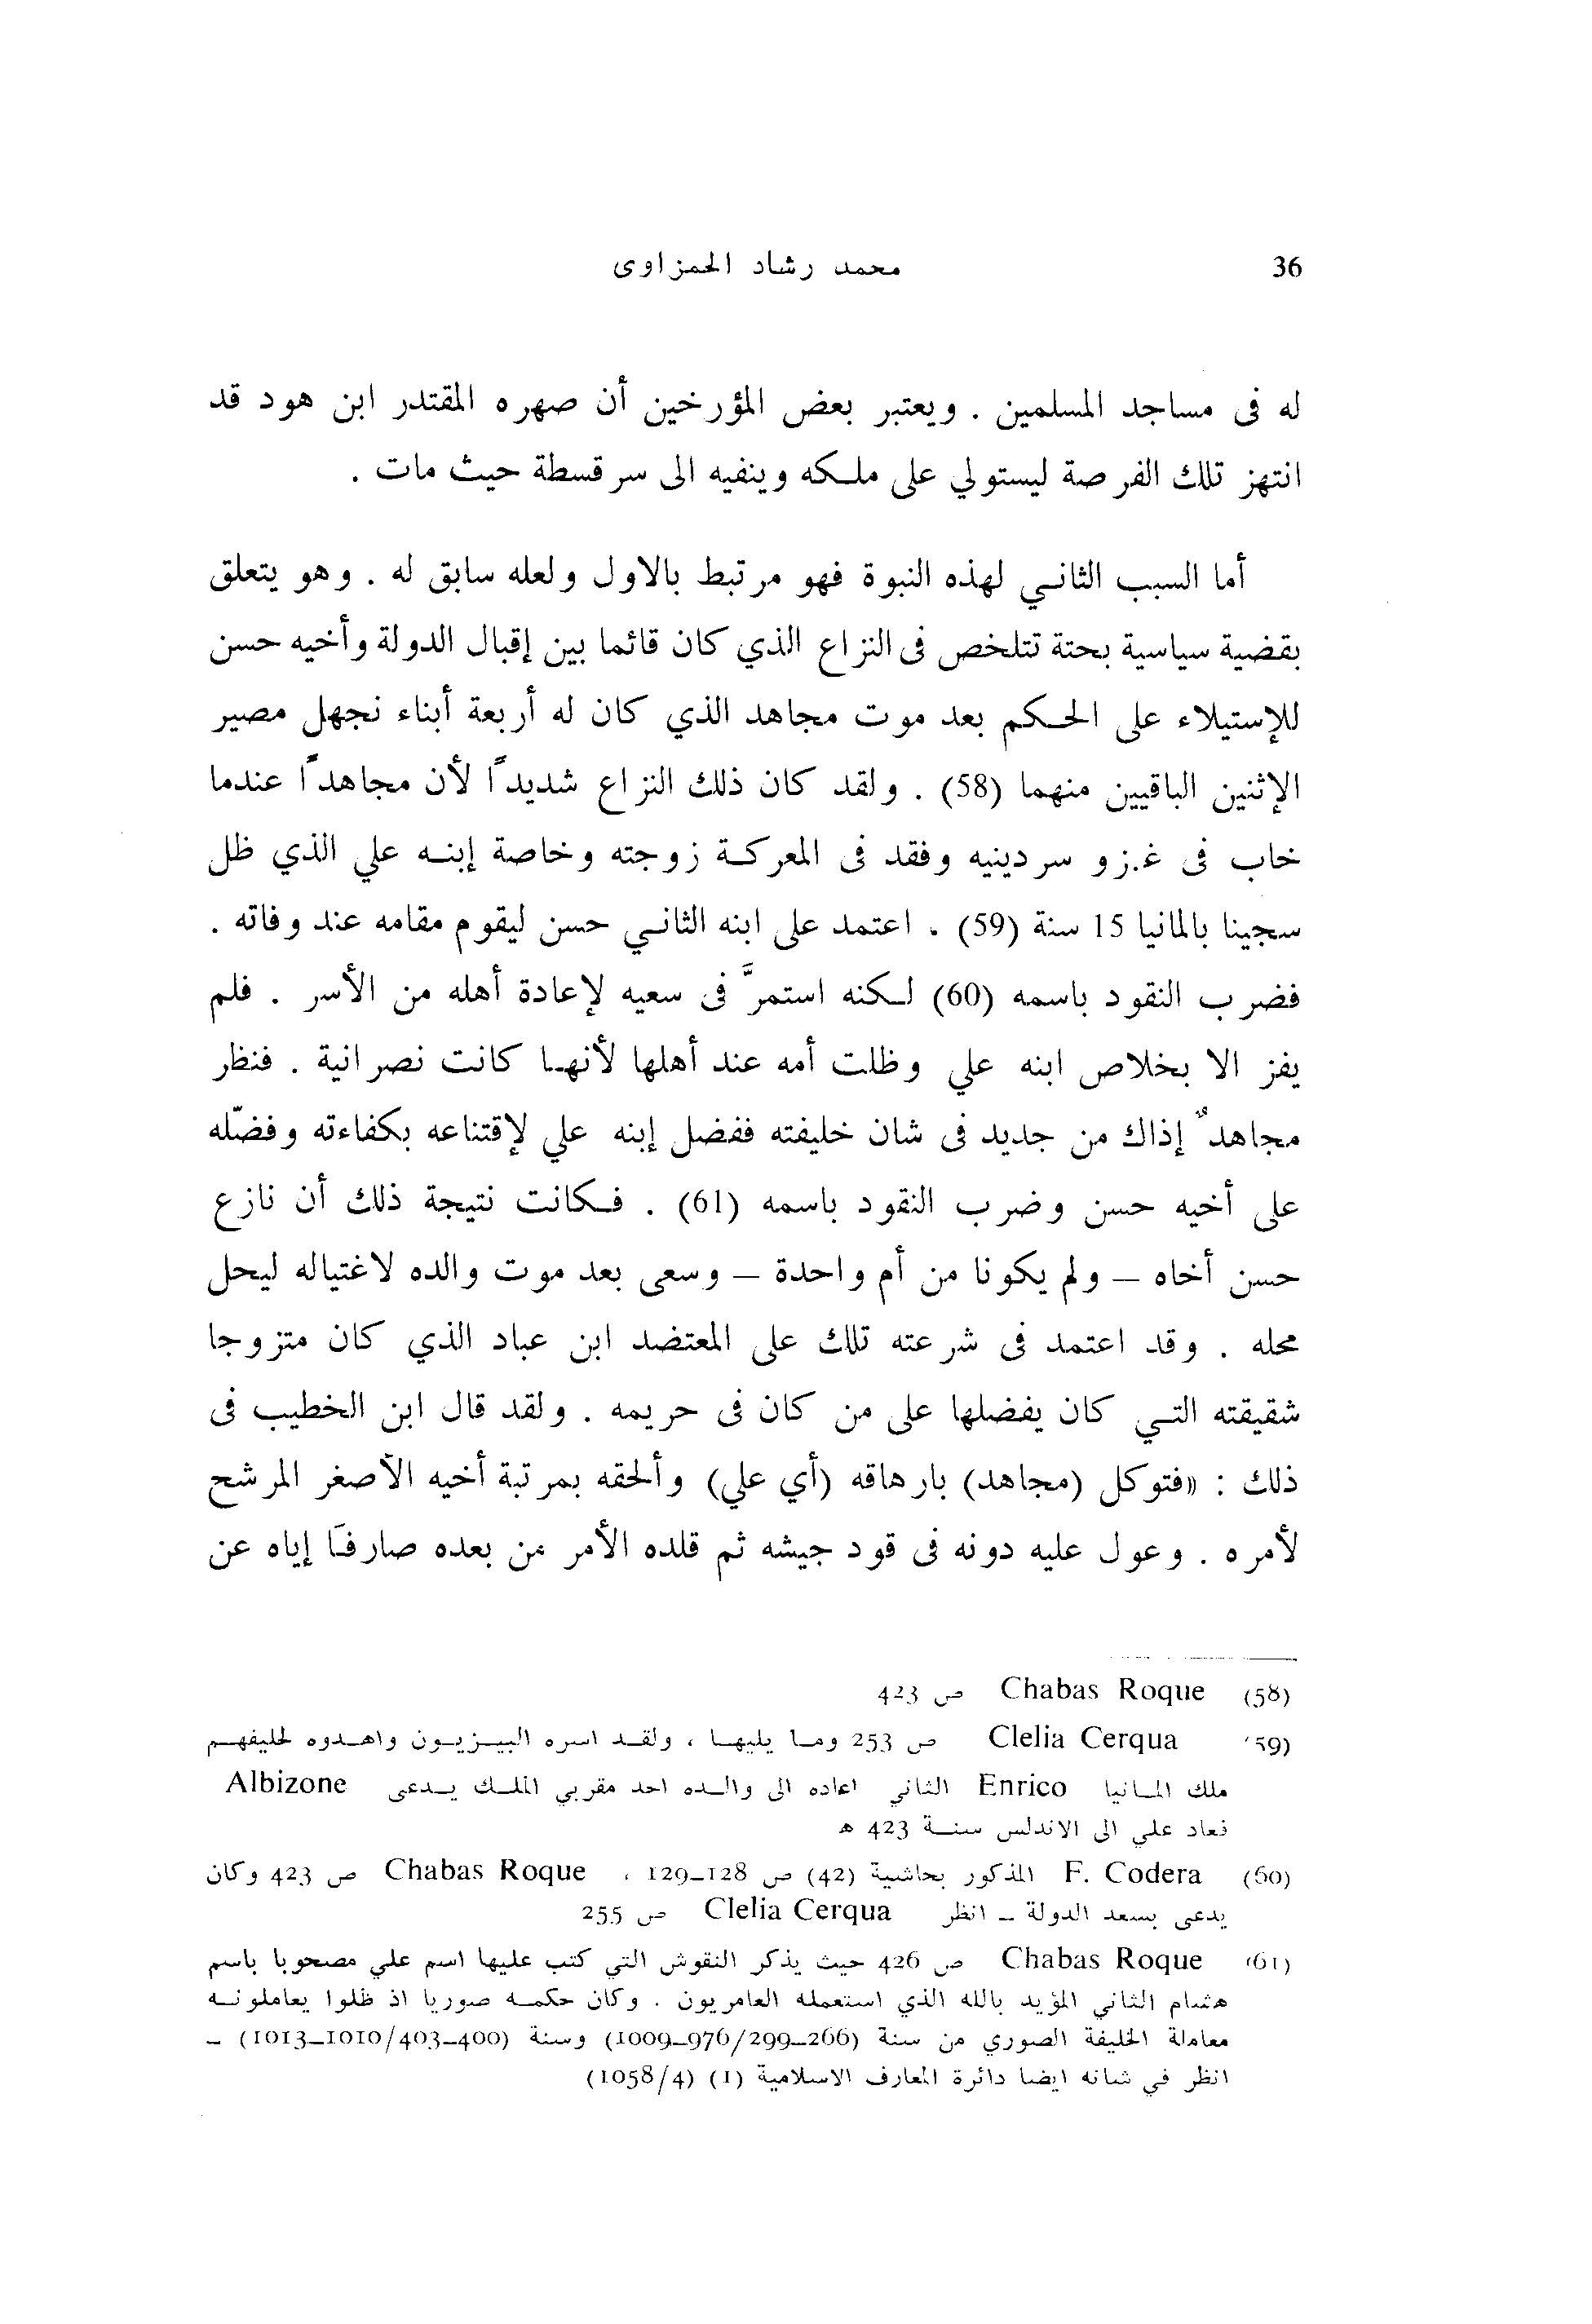 36
محمد رشاد الحمزاوى
له فى مساجد المسلمين . ويعتبر بعض المؤرخين أن صهره المقتدر ابن هود قد
انتهز تلك الفرصة ليستولي على ملكه وينفيه الى سرقسطة حيث مات .
أما السبب الثاني لهذه النبوة فهو مرتبط بالاول ولعله سابق له . وهو يتعلق
بقضية سياسية بحتة تتلخص فى النزاع الذي كان قائما بين إقبال الدولة وأخيه حسن
للإستيلاء على الحكم بعد موت مجاهد الذي كان له أربعة أبناء نجهل مصير
الإثنين الباقيين منهما (58) . ولقد كان ذلك النزاع شديداً لأن مجاهداً عندما
خاب فى غزو سردينيه وفقد فى المعركة زوجته وخاصة إبنه علي الذي ظل
سجينا بالمانيا 15 سنة (59) . اعتمد على ابنه الثاني حسن ليقوم مقامه عند وفاته .
فضرب النقود باسمه (60) لكنه استمرَّ فى سعيه لإعادة أهله من الأسر . فلم
يفز الا بخلاص ابنه علي وظلت أمه عند أهلها لأنها كانت نصرانية . فنظر
مجاهدٌ إذاك من جديد فى شان خليفته ففضل إبنه علي لإقتناعه بكفاءته وفضّله
على أخيه حسن وضرب النقود باسمه (61) . فكانت نتيجة ذلك أن نازع
حسن أخاه – ولم يكونا من أم واحدة – وسعى بعد موت والده لاغتياله ليحل
محله . وقد اعتمد فى شرعته تلك على المعتضد ابن عباد الذي كان متزوجا
شقيقته التي كان يفضلها على من كان فى حريمه . ولقد قال ابن الخطيب فى
ذلك : «فتوكل (مجاهد) بارهاقه (أي علي) وألحقه بمرتبة أخيه الأصغر المرشح
لأمره . وعول عليه دونه فى قود جيشه ثم قلده الأمر من بعده صارفًا إياه عن
(58) Chabas Roque ص 423
(59) Clelia Cerqua ص 253 وما يليها ، ولقد اسره البيزيون واهدوه لحليفهم
ملك المانيا Enrico الثاني اعاده الى والده احد مقربي الملك يدعى Albizone
فعاد علي الى الاندلس سنة 423 ه
(60) F. Codera المذكور بحاشية (42) ص 128–129 ، Chabas Roque ص 423 وكان
يدعى بسعد الدولة – انظر Clelia Cerqua ص 255
(61) Chabas Roque ص 426 حيث يذكر النقوش التي كتب عليها اسم علي مصحوبا باسم
هشام الثاني المؤيد بالله الذي استعمله العامريون . وكان حكمه صوريا اذ ظلوا يعاملونه
معاملة الخليفة الصوري من سنة (266–299/976–1009) وسنة (400–403/1010–1013) –
انظر في شانه ايضا دائرة المعارف الاسلامية (1) (4/1058)